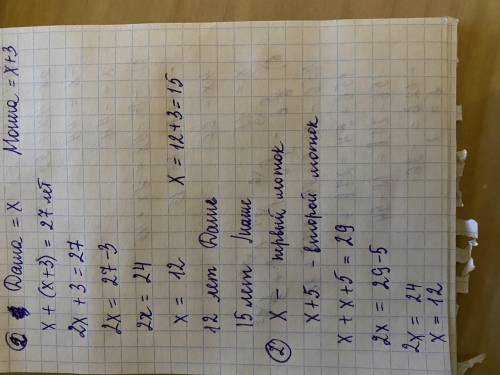 1 Даша = x Маша = x+3
x + (x+3) = 27 лет
2x + 3 = 27
2x = 27-3
2x = 24
x = 12 x = 12+3=15
12 лет Даше
15 лет Маше
2 x - первый моток
x+5 - второй моток
x + x + 5 = 29
2x = 29-5
2x = 24
x = 12